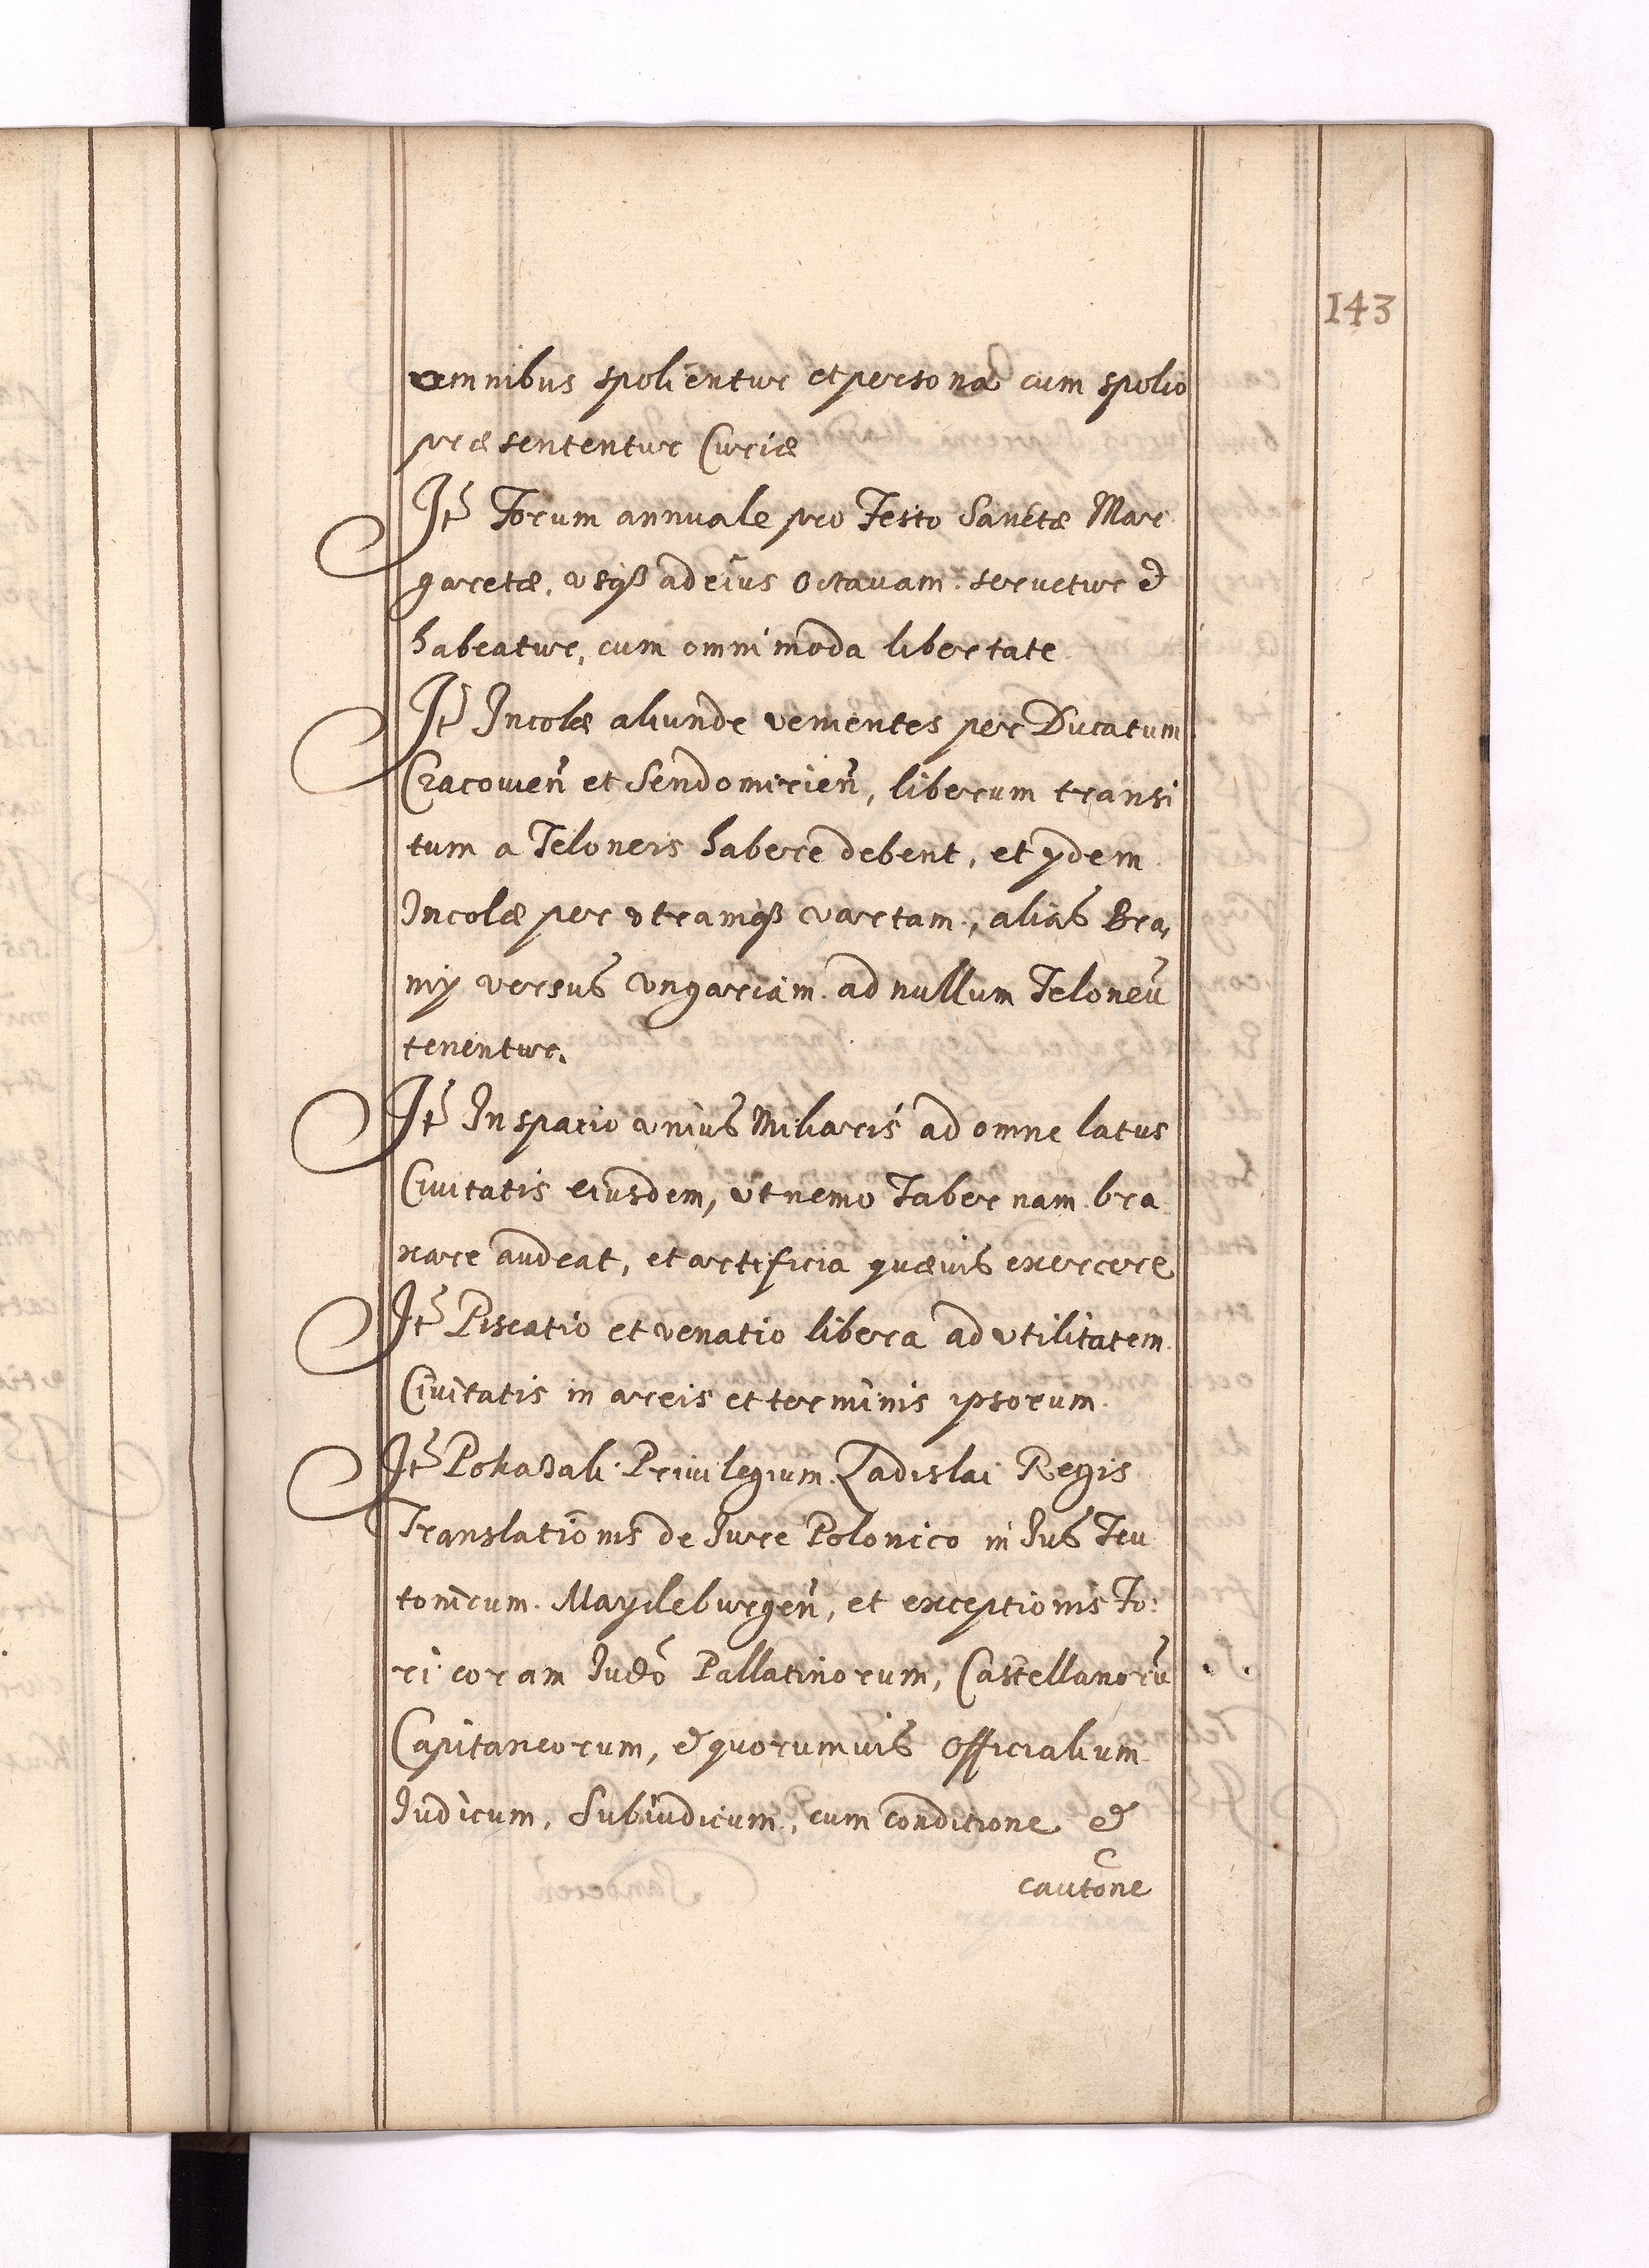 143
omnibus spolientur et persona cum spolio
præsententur Curiæ
It Forum annuale pro Festo Sanctæ Mar
garetæ, vsqȝ ad eius Octauam seruetur &
habeatur, cum omnimoda libertate
It Incolæ aliunde venientes per Ducatum
Cracouien̄ et Sendomirien̄, liberum transi
tum a Teloneis habere debent, et ydem
Incolæ per vtramqȝ vartam, alias Bra,
my versus Vngariam ad nullum Teloneū
tenentur.
It In spatio vnius Miliaris ad omne latus
Ciuitatis eiusdem, vt nemo Tabernam bra
xare audeat, et artificia quæuis exercere
It Piscatio et venatio libera ad vtilitatem
Ciuitatis in areis et terminis ipsorum.
It Pokazali Priuilegium Ladislai Regis
Translationis de Iure Polonico in Ius Teu
tonicum Maydeburgen̄, et exceptionis Fo:
ri coram Iudō Pallatinorum, Castellanorū
Capitaneorum, & quorumuis Officialium
Iudicum, Subiudicum, cum conditione &
cautōne